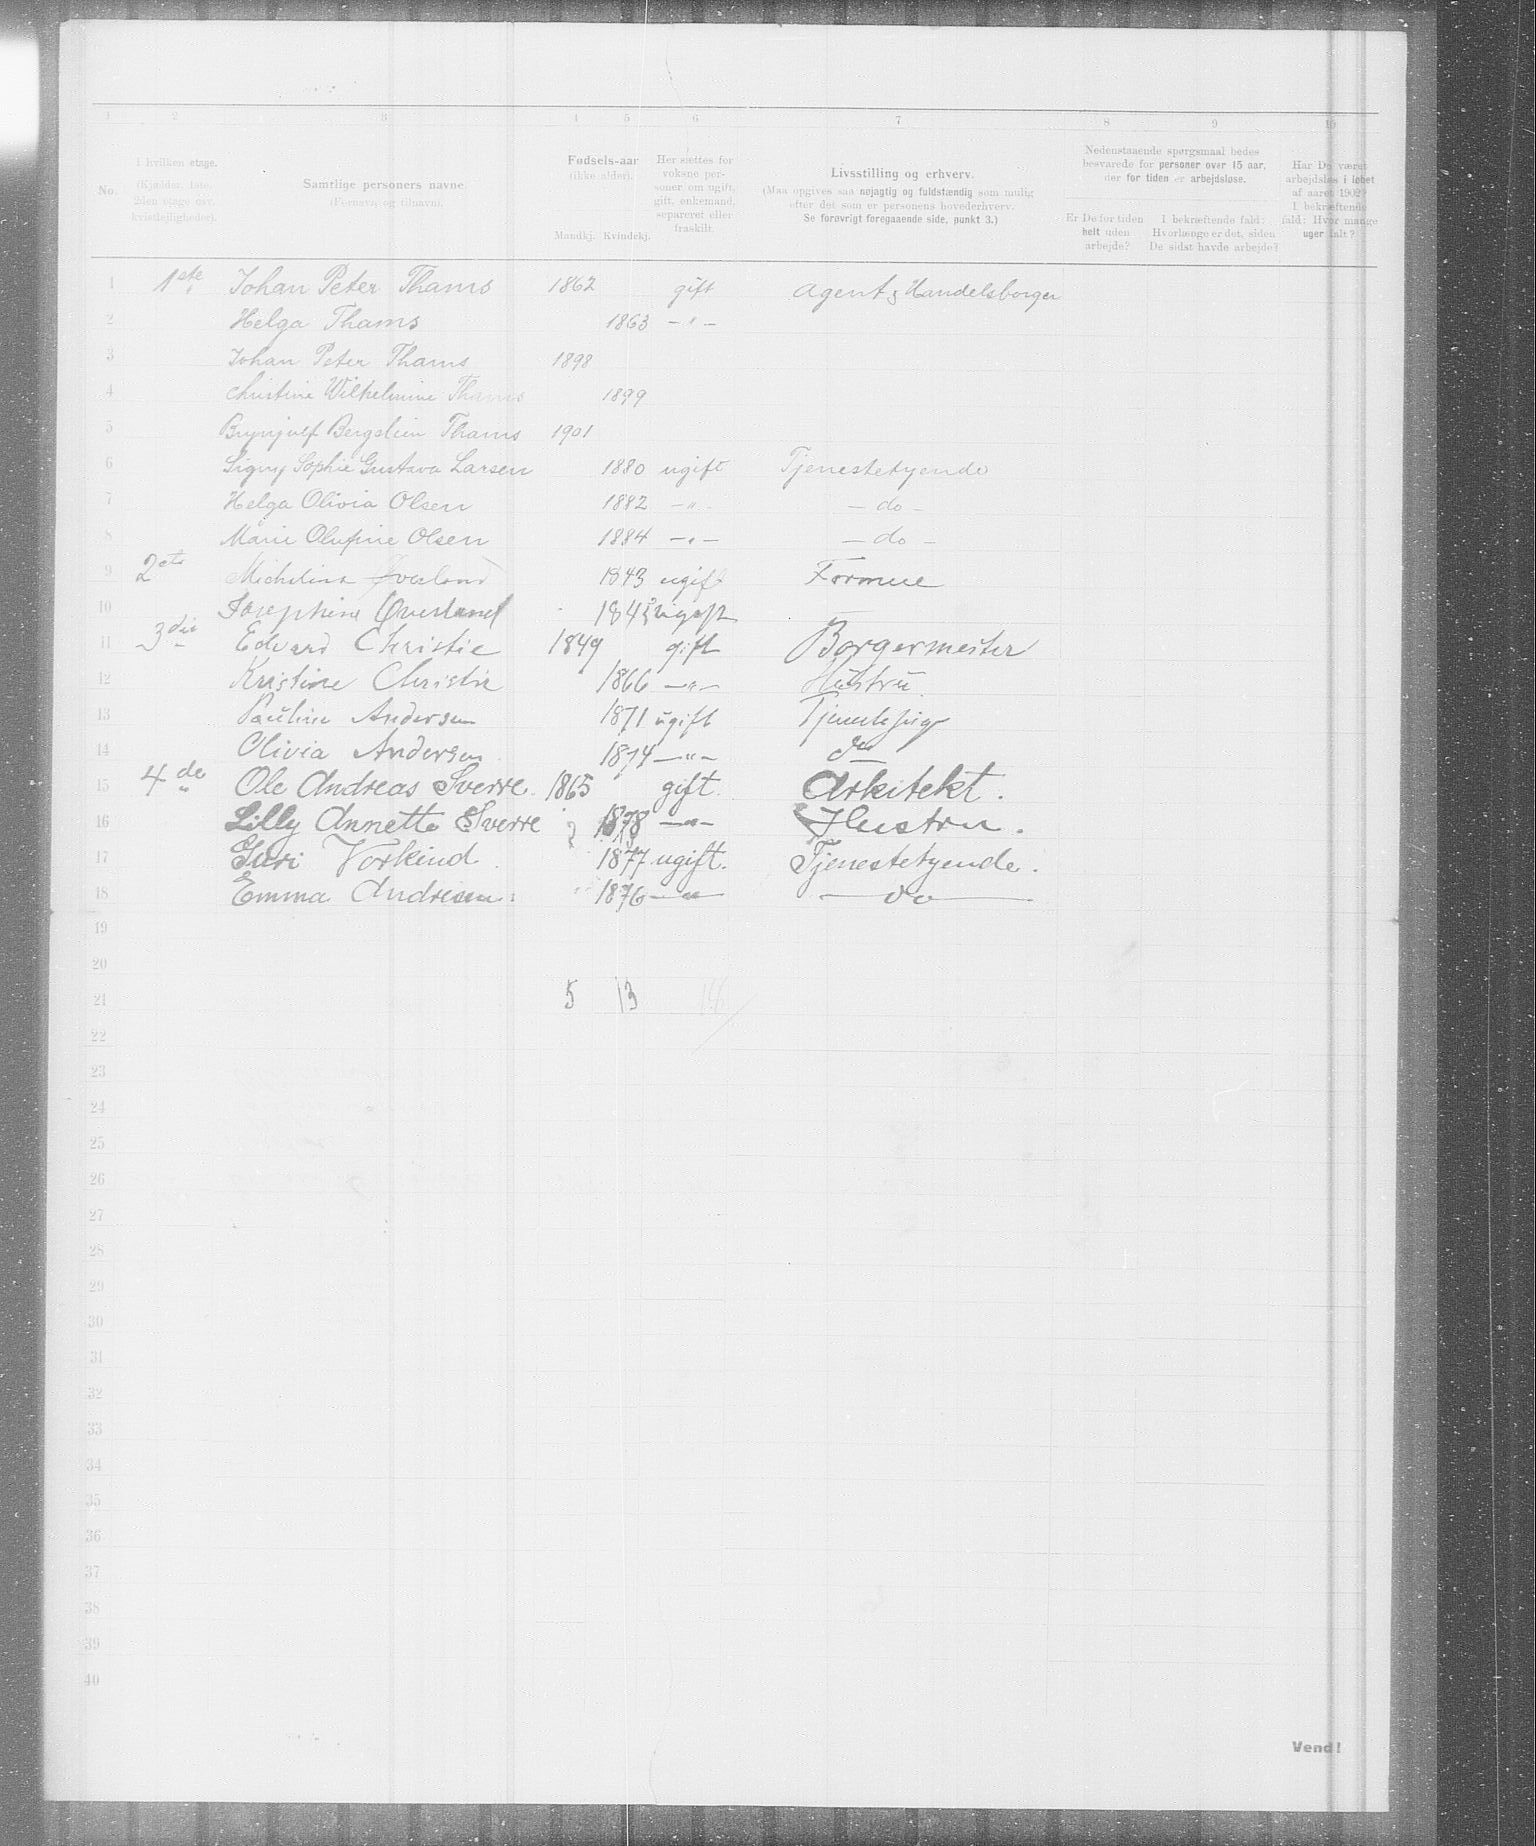 1 2 3 4 5 6 7 8 9 10
No.
I hvilken etage.
(Kjælder, 1ste,
2den etage osv.
kvistleiligheder).
Samtlige personers navne.
(Fornavn og tilnavn).
Fødsels-aar
(ikke alder).
Mandkj. Kvindekj.
Her sættes for
voksne per-
soner om ugift,
gift, enkemand,
separeret eller
fraskilt.
Livsstilling og erhverv.
(Maa opgives saa nøjagtig og fuldstændig som mulig
efter det som er personens hovederhverv.
Se forøvrigt foregaaende side, punkt 3.)
Nedenstaaende spørgsmaal bedes
besvarede for personer over 15 aar,
der for tiden er arbejdsløse.
Er De for tiden
helt uden
arbejde?
I bekræftende fald:
Hvorlænge er det, siden
De sidst havde arbejde?
Har De været
arbejdsløs i løbet
af aaret 1902?
I bekræftende
fald: Hvor mange
uger ialt?
1 1ste Johan Peter Thams 1862 gift Agent & Handelsborger
2 Helga Thams 1863 -"-
3 Johan Peter Thams 1898
4 Christine Wilhelmine Thams 1899
5 Brynjulf Bergslien Thams 1901
6 Signy Sophie Gustava Larsen 1880 ugift Tjenestetyende
7 Helga Olivia Olsen 1882 -"- - do -
8 Marie Olufine Olsen 1884 -"- - do -
9 2etc Michelina Øverland 1843 ugift Formue
10 Josephine Øverland ugift
11 3die Edvard Christie 1849 gift Borgermester
12 Kristine Christie 1866 -"- Hustru
13 Pauline Andersen 1871 ugift Tjenestepige
14 Olivia Andersen 1874 -"- do
15 4de Ole Andreas Sverre. 1865 gift. Arkitekt.
16 Lilly Annette Sverre 1878 -"- Hustru.
17 Guri Vorkind 1877 ugift. Tjenestetyende.
18 Emma Andresen: 1876 -"- do
19
20
21 5 13
22
23
24
25
26
27
28
29
30
31
32
33
34
35
36
37
38
39
40
Vend!